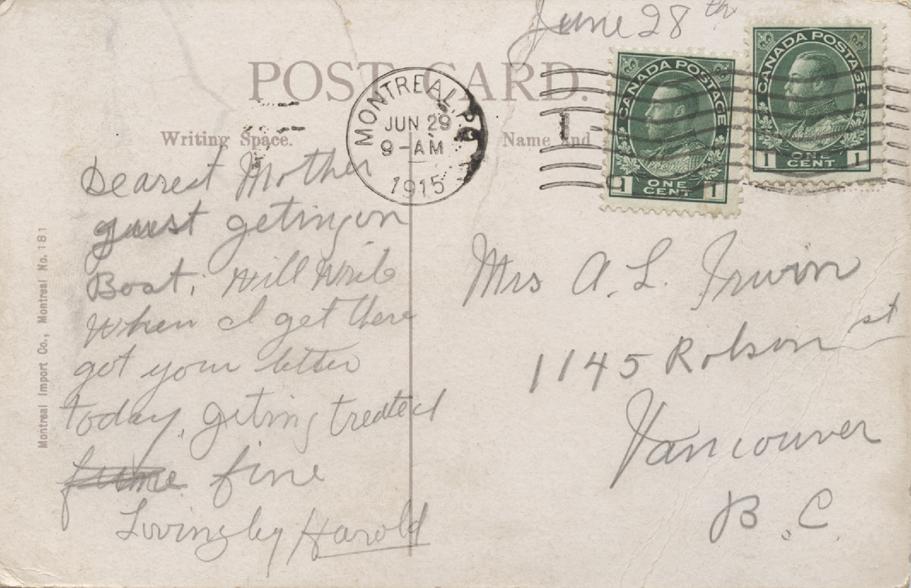 June 28th
POST CARD.
CANADA POSTAGE
1 ONE CENT 1
CANADA POSTAGE
1 ONE CENT 1
MONTREAL, P.Q.
JUN 29
9-AM
1915
Writing Space.
Name and
Dearest Mother
just geting on
Boat, Will Write
When I get there
got your letter
today, geting treated
fine
Lovingley Harold
Mrs A. L. Irwin
1145 Robson st
Vancouver
B.C.
Montreal Import Co., Montreal No. 181